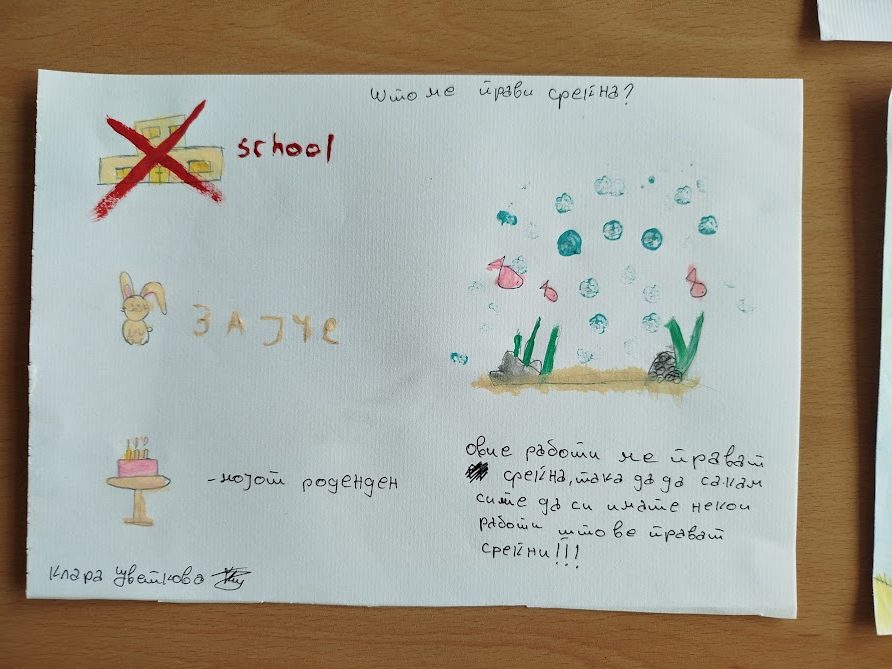 Што ме прави среќна?
school
ЗАЈЧЕ
-мојот роденден
Овие работи ме прават
среќна, така да да сакам
сите да си имате некои
работи што ве прават
среќни!!!
Клара Цветкова